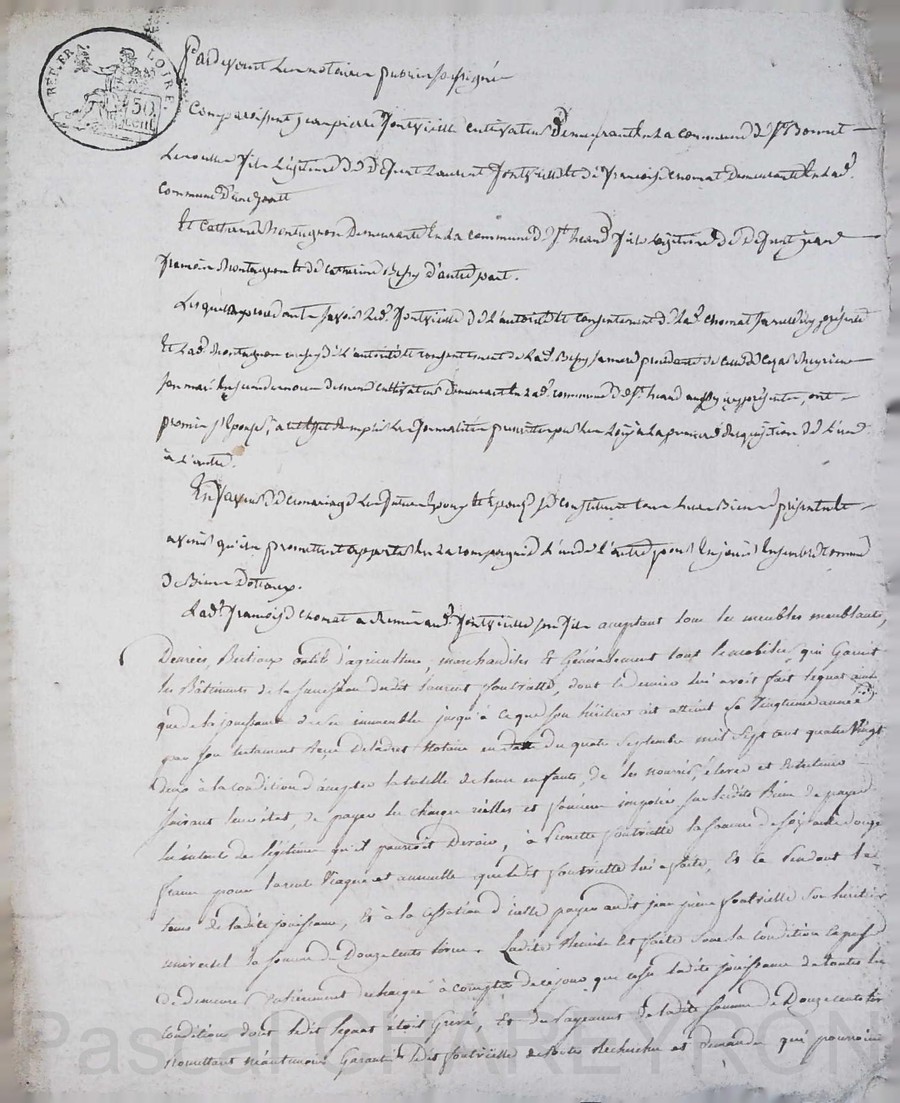 REP. FR. LOIRE
50 cent
Pardevant les notaires publics soussignés
Comparoissent jean pierre fontvieille cultivateur demeurant en la commune de St Bonnet
les oulles fils légitime de défunt Laurent fontvieille et de françoise chomat demeurante en lad.
commune d'une part
Et Catherine montagnon demeurante en la commune de St heand fille légitime de défunt jean
françois montagnon et de catherine d'autre part.
Lesquels procédant savoir led. fontvieille de l'autorité et consentement de lad. chomat sa mère icy présente
Et lad. montagnon de l'autorité et consentement de lad. sa mère procédante de celle de
son mari en secondes noces cultivateur demeurant en lad. commune de St heand aussy icy présente, ont
promis s'épouser, à cet effet remplir les formalités prescrites par les loix à la première réquisition de l'un
à l'autre.
En faveur de ce mariage les futurs époux et épouse se constituent tous leurs Biens présents et
avenir qu'ils promettent apporter en la compagnie l'un de l'autre pour en jouir ensemble comme
de Biens Dotaux.
Lad. françoise chomat a Remis aud. fontvieille son fils acceptant tous les meubles meublants,
Denrées, Bestiaux outils d'agriculture, marchandises Et Généralement tout le mobilier qui Garnit
les Bâtiments de la succession dudit Laurent fontvieille, dont ce dernier lui avoit fait legat ainsi
que de la jouissance de ses immeubles jusqu'à ce que son héritier ait atteint sa vingtième année
par son testament Reçu Deladret Notaire en date du quatre Septembre mil sept cent quatre vingt
deux à la condition d'accepter la tutelle de leurs enfants, de les nourrir, élever et Entretenir
suivant leur état, de payer les charges réelles et foncières imposées sur lesdits Biens de payer
les intérêts de légitimes qu'il pourroit Devoir, à fontvieille la somme de soixante douze
francs pour la rente viagère et annuelle que ledit fontvieille lui a faite, Et ce Pendant le
tems de ladite jouissance, Et à la cessation d'icelle payer audit jean pierre fontvieille son héritier
universel la somme de Douze cents livres. Ladite Remise est faite sous la condition expresse
de demeurer Entièrement déchargée à compter de ce jour que cesse ladite jouissance de toutes les
conditions dont ledit legat étoit Grevé, Et du payement de ladite somme de Douze cents
promettant néantmoins Garantir ledit fontvieille de toutes Recherches et demandes qui pourroient
Pascal CHAREYRON